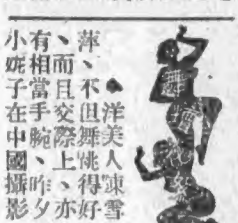 ◆洋美人陳雪
萍、不但舞跳得好
、而且交際上、亦
有相當手腕、昨夕
小妮子在中國攝影